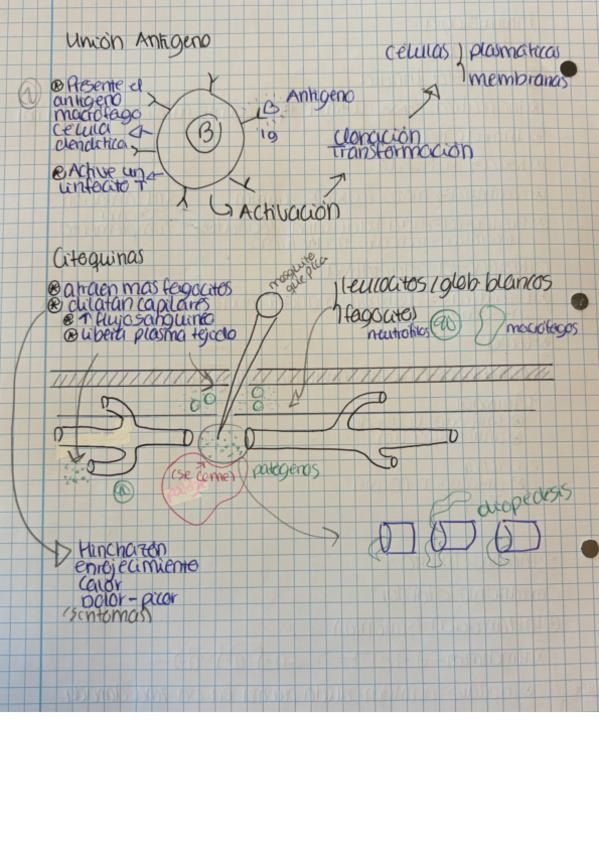 Unión Antígeno
células } plasmáticas
membranas
1
Presente el
antígeno
macrófago
célula
dendrítica
Active un
linfocito T
B
Antígeno
Ig
clonación
transformación
Activación
Citoquinas
atraen más fagocitos
dilatan capilares
↑ flujo sanguíneo
libera plasma tejido
mosquito
que pica
leucocitos/glob blancos
fagocitos
neutrófilos
macrófagos
(se comen)
patógenos
diapédesis
Hinchazón
enrojecimiento
calor
Dolor-picor
(síntomas)